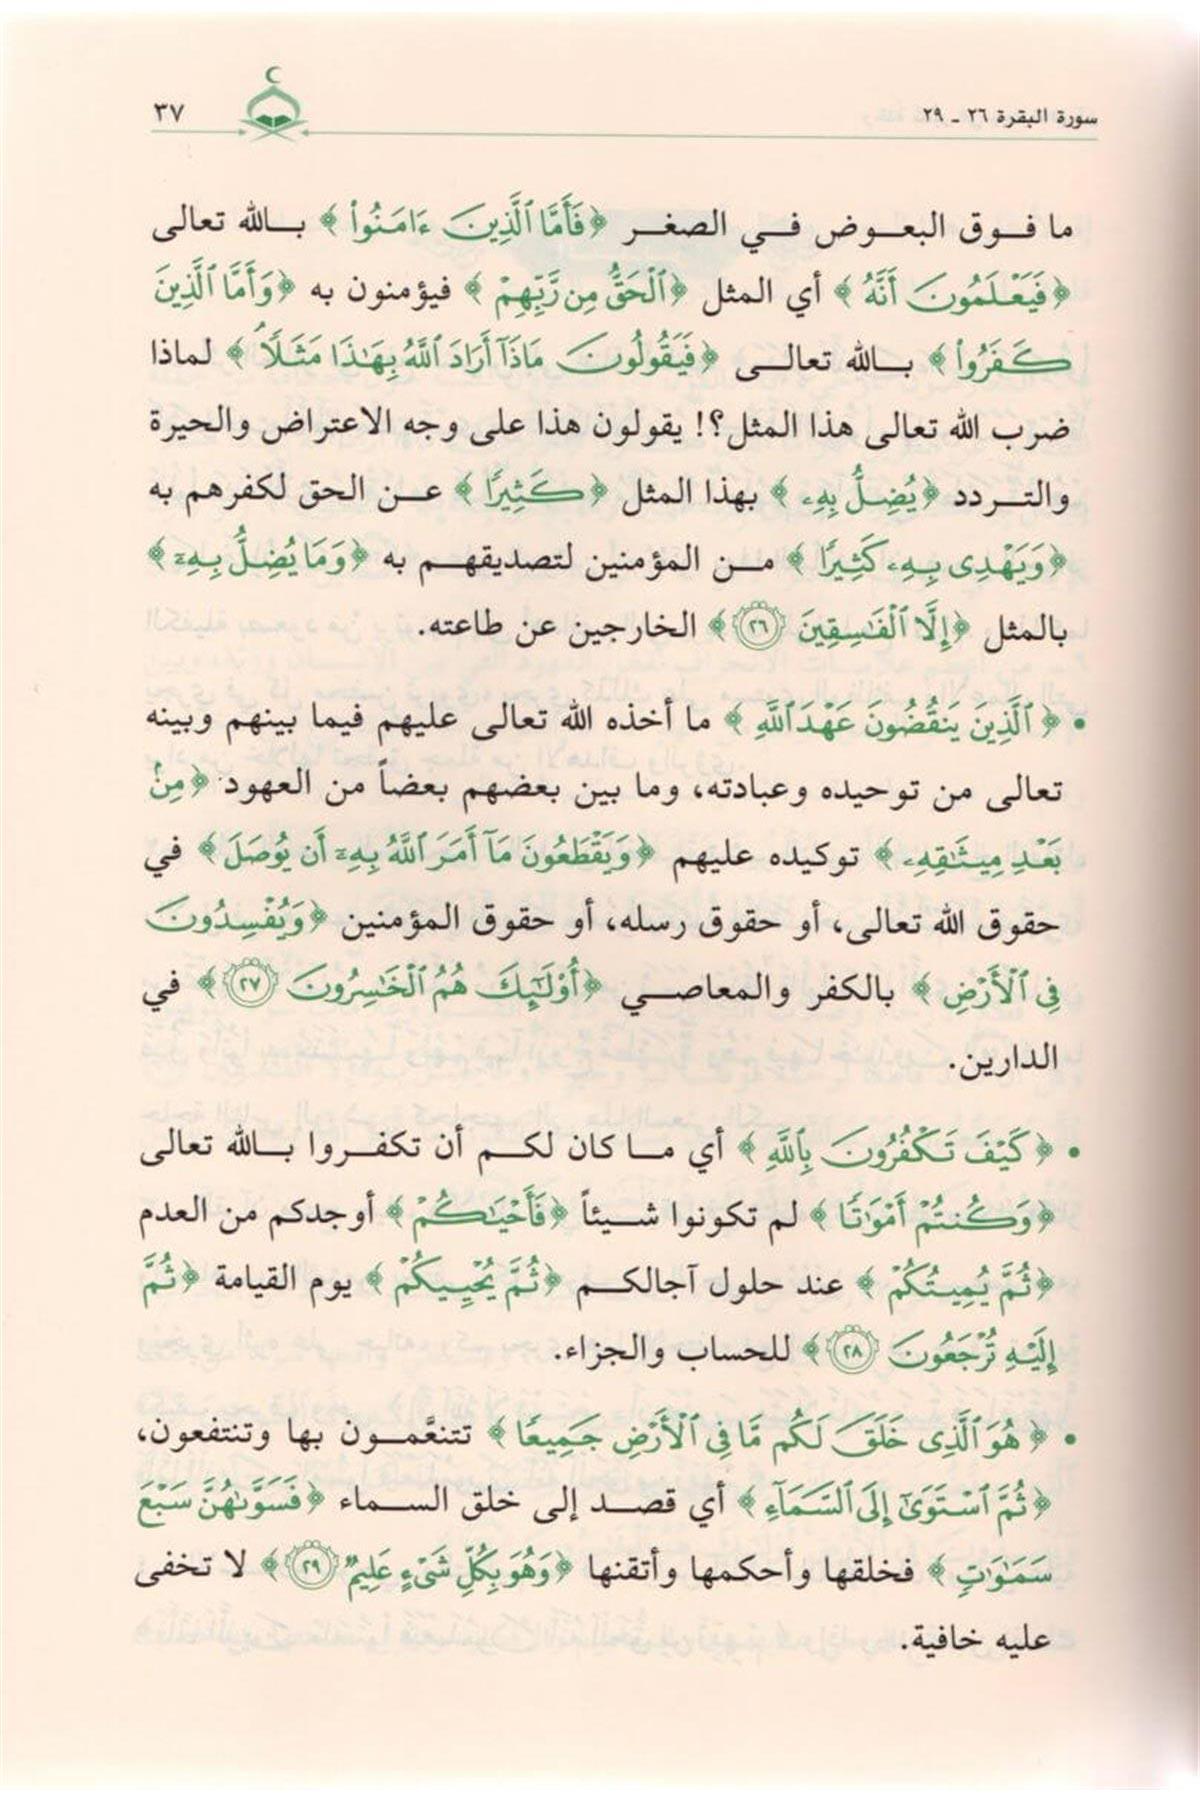 سورة البقرة ٢٦ ـ ٢٩
٣٧
ما فوق البعوض في الصغر ﴿فَأَمَّا ٱلَّذِينَ ءَامَنُواْ﴾ بالله تعالى
﴿فَيَعۡلَمُونَ أَنَّهُ﴾ أي المثل ﴿ٱلۡحَقُّ مِن رَّبِّهِمۡ﴾ فيؤمنون به ﴿وَأَمَّا ٱلَّذِينَ
كَفَرُواْ﴾ بالله تعالى ﴿فَيَقُولُونَ مَاذَآ أَرَادَ ٱللَّهُ بِهَٰذَا مَثَلٗاۘ﴾ لماذا
ضرب الله تعالى هذا المثل؟! يقولون هذا على وجه الاعتراض والحيرة
والتردد ﴿يُضِلُّ بِهِۦ﴾ بهذا المثل ﴿كَثِيرٗا﴾ عن الحق لكفرهم به
﴿وَيَهۡدِي بِهِۦ كَثِيرٗا﴾ من المؤمنين لتصديقهم به ﴿وَمَا يُضِلُّ بِهِۦٓ﴾
بالمثل ﴿إِلَّا ٱلۡفَٰسِقِينَ ٢٦﴾ الخارجين عن طاعته.
• ﴿ٱلَّذِينَ يَنقُضُونَ عَهۡدَ ٱللَّهِ﴾ ما أخذه الله تعالى عليهم فيما بينهم وبينه
تعالى من توحيده وعبادته، وما بين بعضهم بعضاً من العهود ﴿مِنۢ
بَعۡدِ مِيثَٰقِهِۦ﴾ توكيده عليهم ﴿وَيَقۡطَعُونَ مَآ أَمَرَ ٱللَّهُ بِهِۦٓ أَن يُوصَلَ﴾ في
حقوق الله تعالى، أو حقوق رسله، أو حقوق المؤمنين ﴿وَيُفۡسِدُونَ
فِي ٱلۡأَرۡضِ﴾ بالكفر والمعاصي ﴿أُوْلَٰٓئِكَ هُمُ ٱلۡخَٰسِرُونَ ٢٧﴾ في
الدارين.
• ﴿كَيۡفَ تَكۡفُرُونَ بِٱللَّهِ﴾ أي ما كان لكم أن تكفروا بالله تعالى
﴿وَكُنتُمۡ أَمۡوَٰتٗا﴾ لم تكونوا شيئاً ﴿فَأَحۡيَٰكُمۡ﴾ أوجدكم من العدم
﴿ثُمَّ يُمِيتُكُمۡ﴾ عند حلول آجالكم ﴿ثُمَّ يُحۡيِيكُمۡ﴾ يوم القيامة ﴿ثُمَّ
إِلَيۡهِ تُرۡجَعُونَ ٢٨﴾ للحساب والجزاء.
• ﴿هُوَ ٱلَّذِي خَلَقَ لَكُم مَّا فِي ٱلۡأَرۡضِ جَمِيعٗا﴾ تتنعَّمون بها وتنتفعون،
﴿ثُمَّ ٱسۡتَوَىٰٓ إِلَى ٱلسَّمَآءِ﴾ أي قصد إلى خلق السماء ﴿فَسَوَّىٰهُنَّ سَبۡعَ
سَمَٰوَٰتٖ﴾ فخلقها وأحكمها وأتقنها ﴿وَهُوَ بِكُلِّ شَيۡءٍ عَلِيمٞ ٢٩﴾ لا تخفى
عليه خافية.